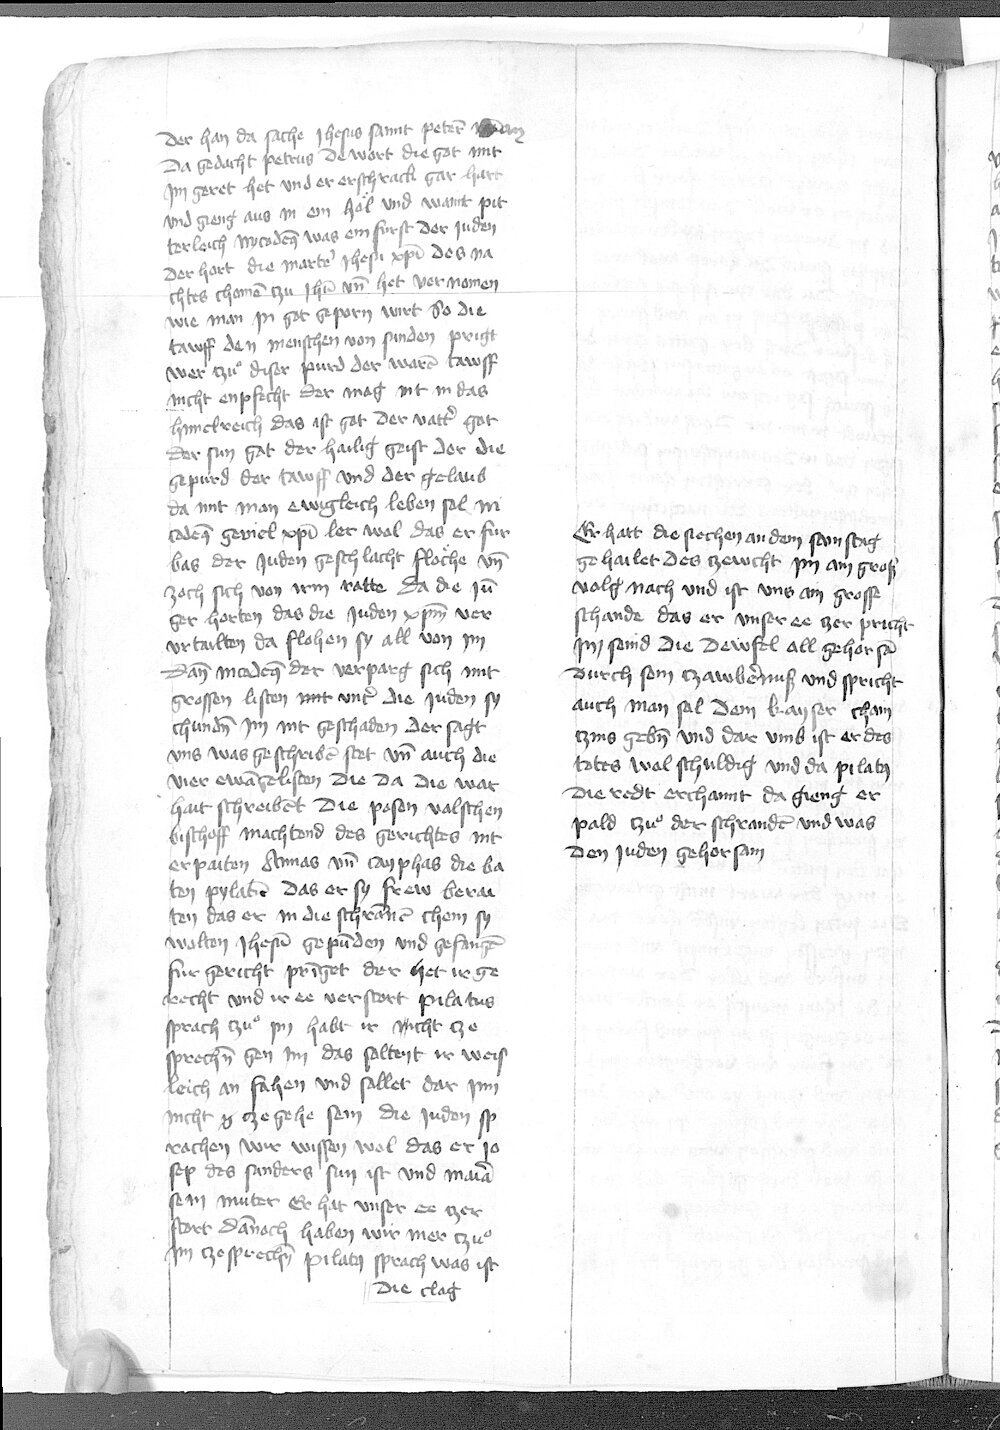 Der han da sache Jhesus sannt peter̄
Da gedacht petrus De wort die got mit
Jm geret het und er erschrack gar hart
vnd gieng aus in ein hol und waint pit
terleich Nycodem9 was ein furst der Juden
Der hort die marter Jhesu xp̄i des na
chtes chomē tzu Jh̄u vn̄ het vernomen
wie man jn got geporn wirt So die
tawff den menschen von sunden prigt
wer tzuͦ diser purd der warē tawff
nicht enpfecht Der mag nit in das
himelreich das ist got der vatter got
Der sun got der hailig geist der die
gepurd der tawff und der gelaub
da mit man ewigleich leben sol ni
codem9 geviel xp̄i ler wol das er fur
bas der Juden geschlacht floche vn̄
zoch sich von irm ratte Da die Ju̅
ger horten das die Juden xp̄m ver
vrtailten da flohen sy all von jm
Dan̄ nicodem9 der verparg sich mit
grossen listen mit unter die Juden sy
chundn̄ Jm nit geschaden Der sagt
uns was geschribē stet vn̄ auch die
vier ewāgelisten Die Da Die war
hait schreibēt Die posen valschen
bischoff machtend des gerichtes nit
erpaiten Annas vn̄ cayphas die ba
ten pylatū Das er sy frew berai
ten das er in die schrānē chem sy
wolten Jhesū gepūden und gefangē
fur gericht prīget der het ir ge
recht und ir ee verstort pilatus
sprach tzuͦ jn habt ir nicht tze
sprechn̄ gen im das soltent ir weis
leich an fahen und sollet dar jnn
nicht tze gehe sein die Juden sp
rachen wir wissen wol das er jo
sep des sinders sun ist und maiā
sein muter Er hat unser ee tzer
stort Dānoch haben wir mer tzuͦ
jm tzesprechn̄ pilat9 sprach was ist
Die clag
Er hatt die siechen an dem samstag
gehailet Des tzewcht jm ain groß
volg nach und ist uns ain grosse
schande das er unser ee tzerpricht
Jm seind die Dewfel all gehorsā
Durch sein tzawbernuß und spricht
auch man sol Dem kayser chain
tzins gebn̄ und dar umb ist er des
totes wol schuldig und da pilat9
Die redt erchannt da gieng er
pald tzuͦ der schrandē und was
Den Juden gehorsam